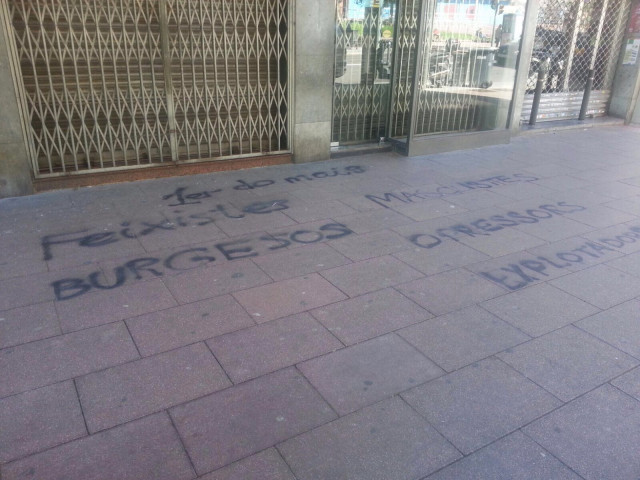 1er de maig
Feixistes
BURGESOS
MASCLISTES
OPRESSORS
EXPLOTADORS